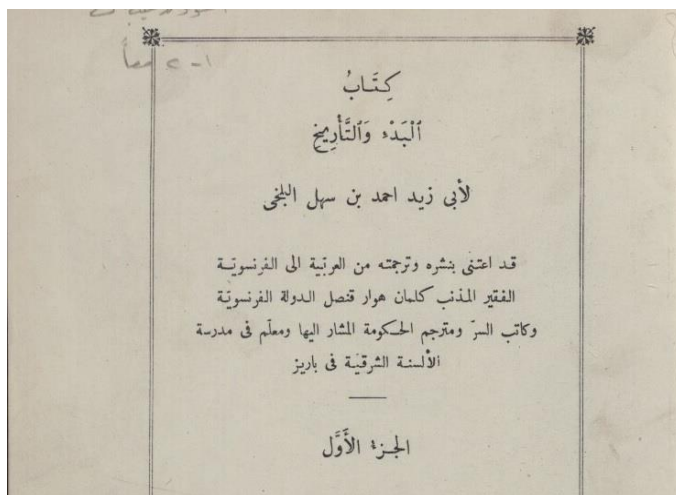 ١-٢ معاً
كِتَابُ
ٱلْبَدْءِ وَٱلتَّأْرِيخِ
لأبى زيد احمد بن سهل البلخى
قد اعتنى بنشره وترجمته من العربّية الى الفرنسويّة
الفقير المذنب كلمان هوار قنصل الدولة الفرنسويّة
وكاتب السرّ ومترجم الحكومة المشار اليها ومعلّم فى مدرسة
الألسنة الشرقيّة فى باريز
الجزء الأَوَّل